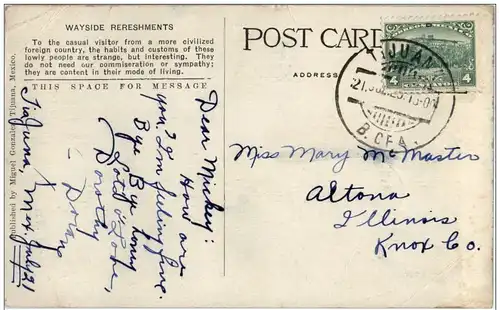 WAYSIDE RERESHMENTS
To the casual visitor from a more civilized
foreign country, the habits and customs of these
lowly people are strange, but interesting. They
do not need our commiseration or sympathy;
they are content in their mode of living.
THIS SPACE FOR MESSAGE
Published by Miguel Gonzalez, Tijuana, Mexico.
Dear Mickey:
How are
you? I'm feeling fine.
Bye Bye Honey
Lots o' Love,
Dorothy
Tia Juana, Mex. July 21
POST CARD
ADDRESS
TIJUANA
B. CFA.
4 4
Miss Mary McMaster
Altona
Illinois
Knox Co.